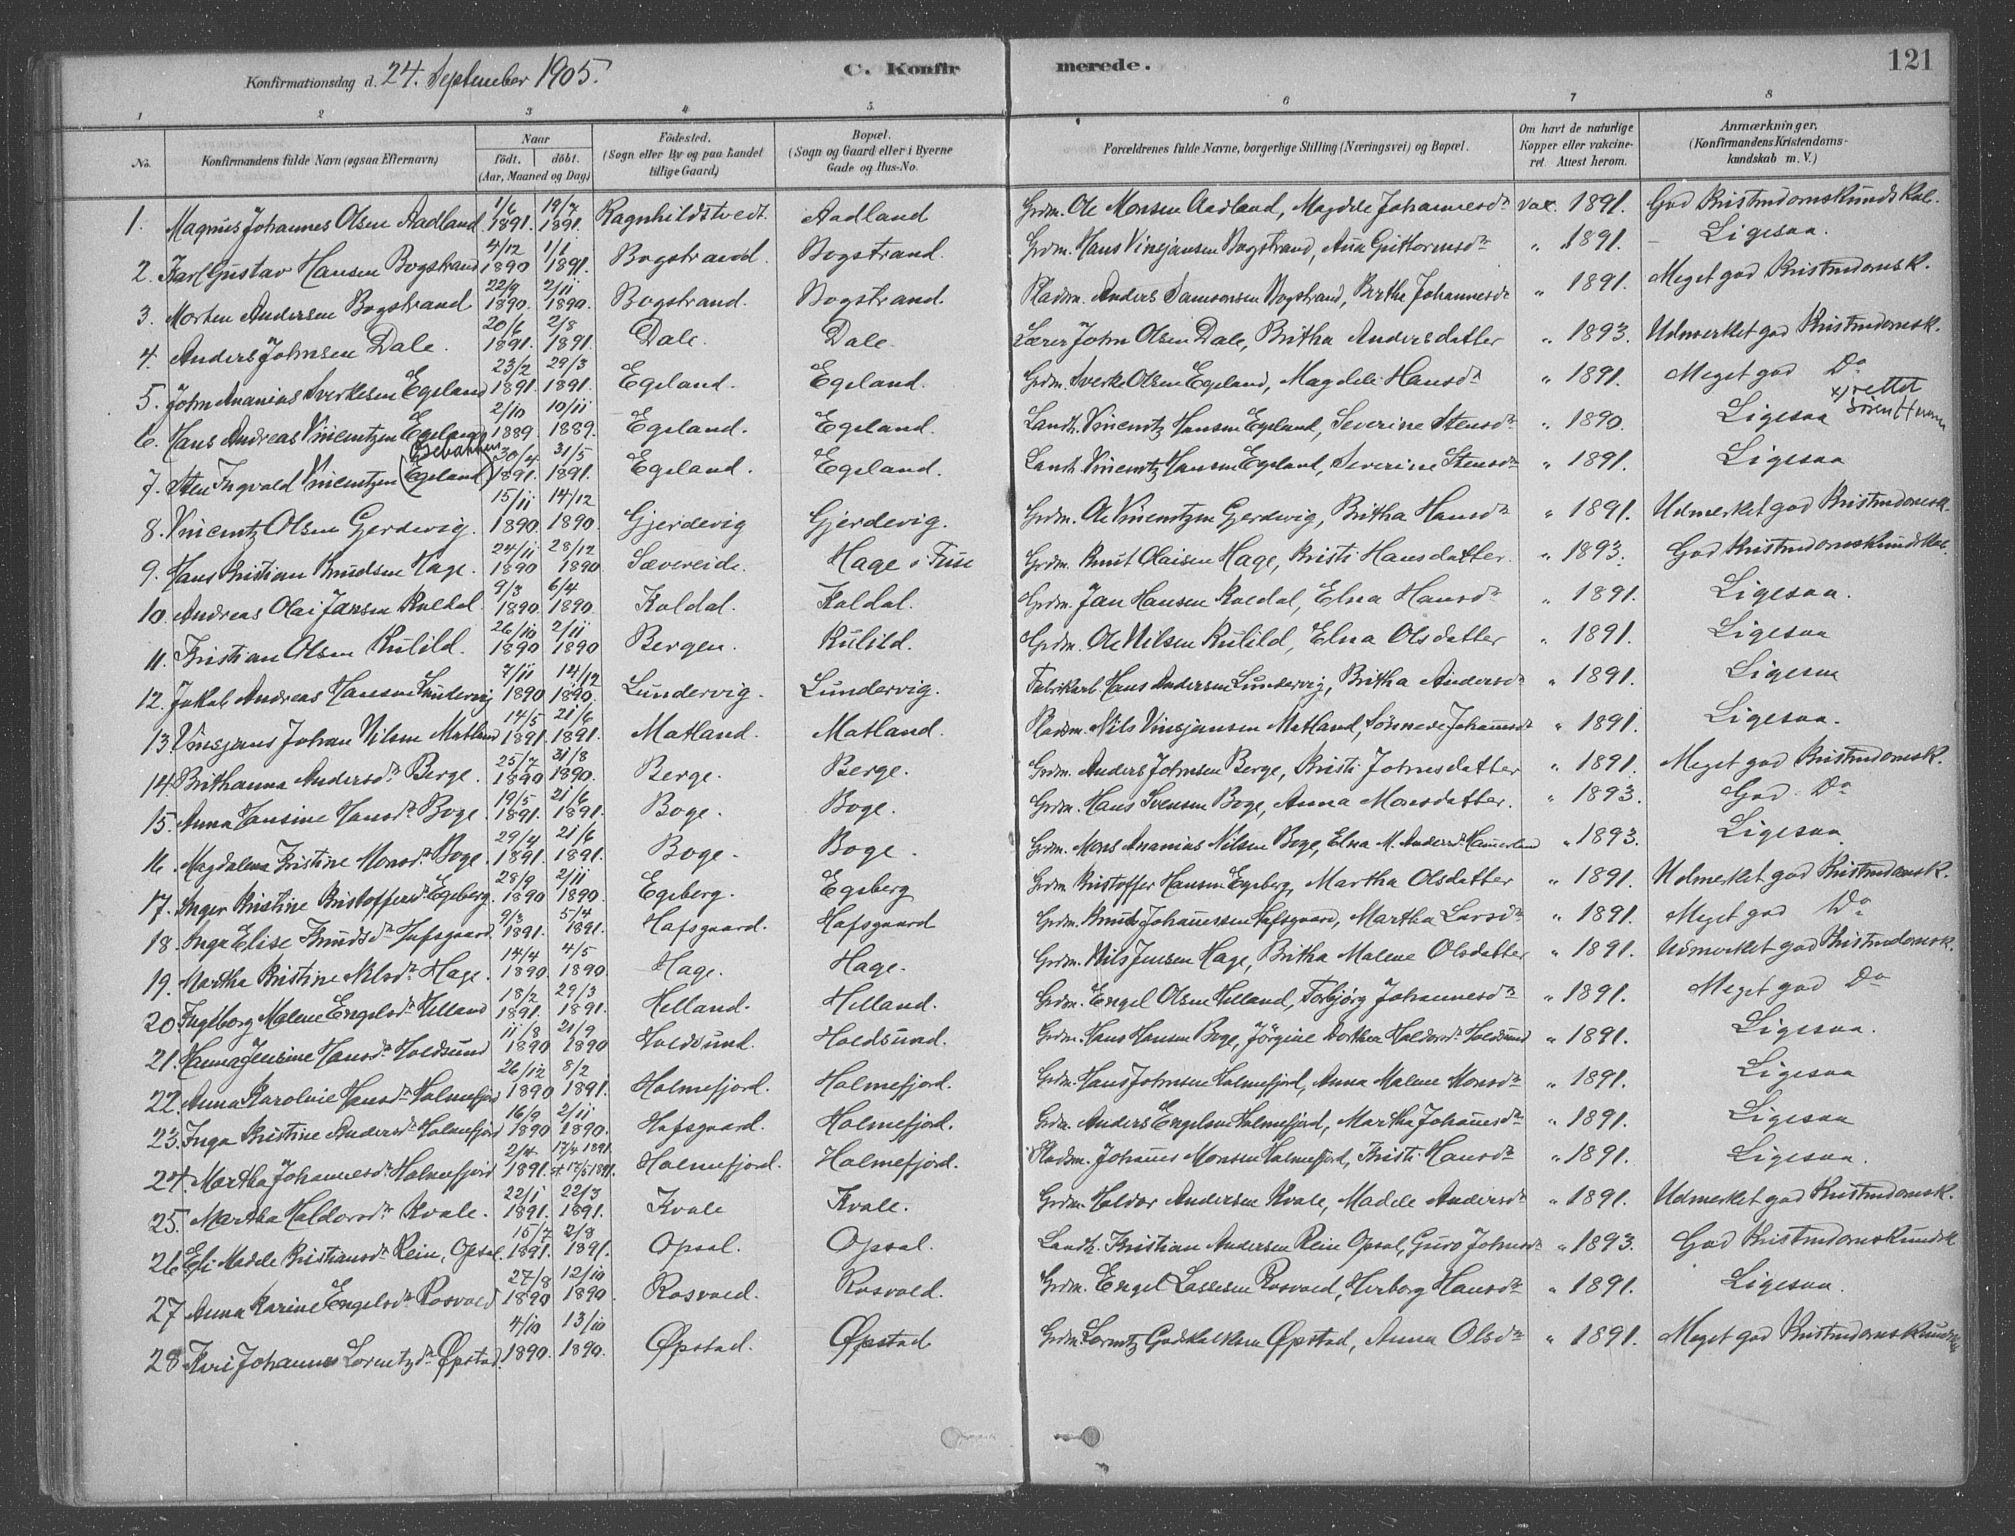 Konfirmationsdag d. 24. September 1905.
C. Konfirmerede.
121
1 2 3 4 5 6 7 8
No. Konfirmandens fulde Navn (ogsaa Efternavn) Naar født. døbt. (Aar, Maaned og Dag) Fødested. (Sogn eller By og paa Landet tillige Gaard) Bopæl. (Sogn og Gaard eller i Byerne Gade og Hus-No. Forældrenes fulde Navne, borgerlige Stilling (Næringsvei) og Bopæl. Om havt de naturlige Kopper eller vakcineret. Attest herom. Anmærkninger. (Konfirmandens Kristendomskundskab m. V.)
1. Magnus Johannes Olsen Aadland 1/6 1891. 19/7 1891. Ragnhildstvedt. Aadland Grdm. Ole Monsen Aadland, Magdele Johannesdr vac. 1891. God Kristendomskundskab.
2. Karl Gustav Hansen Bogstrand 4/12 1890 1/1 1891. Bogstrand. Bogstrand. Grdm. Hans Vinsjansen Bogstrand, Ana Guttormsdr " 1891. – Ligesaa.
3. Morten Andersen Bogstrand 22/9 1890. 2/11 1890. Bogstrand. Bogstrand. Pladsm. Anders Samsonsen Bogstrand, Bertha Johannesdr " 1891. Meget god Kristendomsk.
4. Anders Johnsen Dale. 20/6 1891. 2/8 1891. Dale. Dale. Lærer John Olsen Dale, Britha Andersdatter " 1893. Udmerket god Kristendomsk.
5. John Ananias Sverkesen Egeland 23/2 1891. 29/3 1891. Egeland. Egeland. Grdm. Sverke Olsen Egeland, Magdeli Hansdr " 1891. Meget god Do
6. Hans Andreas Vincentzen Egeland 2/10 1889 10/11 1889. Egeland. Egeland. Landh. Vincentz Hansen Egeland, Severine Stensdr " 1890. Ligesaa x) rettet
7. Sten Ingvald Vincentzen (Egeland) 30/4 1891. 31/5 1891. Egeland. Egeland. Landh. Vincentz Hansen Egeland, Severine Stensdr " 1891. Ligesaa
8. Vincentz Olsen Gjerdevig. 15/11 1890 14/12 1890. Gjerdevig Gjerdevig. Grdm. Ole Vincentzen Gjerdevig, Britha Hansdr " 1891. Udmerket god Kristendomsk.
9. Hans Kristian Knudsen Hage. 24/11 1890 28/12 1890 Sævereide. Hage i Fuse Grdm. Knut Olaisen Hage, Kristi Hansdatter. " 1893. God Kristendomskundskab.
10. Andreas Olai Jansen Koldal. 9/3 1890 6/4 1890. Koldal. Koldal. Grdm. Jan Hansen Koldal, Elna Hansdr " 1891. Ligesaa.
11. Kristian Olsen Kulild. 26/10 1890 2/11 1890 Bergen. Kulild. Grdm. Ole Nilsen Kulild, Elna Olsdatter " 1891. Ligesaa
12. Jakob Andreas Hansen Lundervig 7/11 1890 14/12 1890. Lundervig. Lundervig. Fabrikarb. Hans Andersen Lundervig, Britha Andersdr " 1891. Ligesaa
13. Vinsjans Johan Nilsen Matland 14/5 1891. 21/6 1891. Matland. Matland. Pladsm. Nils Vinsjansen Matland, Sønneve Johannesdr " 1891. Ligesaa.
14. Brithanna Andersdr Berge. 25/7 1890 31/8 1890. Berge. Berge. Grdm. Anders Johnsen Berge, Kristi Johnesdatter " 1891. Meget god Kristendomsk.
15. Anna Hansine Hansdr Boge. 19/5 1891. 21/6 1891. Boge. Boge. Grdm. Hans Svensen Boge, Anna Monsdatter. " 1893. God Do
16. Magdalena Kristine Monsdr Boge. 29/4 1891. 21/6 1891. Boge. Boge. Grdm. Mons Ananias Nilsen Boge, Elna M. Andersdr Hammerland " 1893. Ligesaa
17. Inger Kristine Kristoffersdr Egeberg. 28/9 1890 2/11 1890. Egeberg. Egeberg Grdm Kristoffer Hansen Egeberg, Martha Olsdatter " 1891. Udmerket god Kristendomsk.
18. Inga Elise Knudsdr Hafsgaard. 9/3 1891. 5/4 1891. Hafsgaard. Hafsgaard Grdm. Knut Johannessen Hafsgaard, Martha Larsdr " 1891. Meget god Do
19. Martha Kristine Nilsdr Hage. 14/4 1890. 4/5 1890. Hage. Hage. Grdm. Nils Jensen Hage, Britha Malene Olsdatter " 1891. Udmerket god Kristendomsk.
20. Ingeborg Malene Engelsdr Helland 18/2 1891. 29/3 1891. Helland. Helland. Grdm. Engel Olsen Helland, Torbjørg Johannesdr " 1891. Meget god Do
21. Hanna Jensine Hansdr Holdsund 11/8 1890 21/9 1890 Holdsund. Holdsund. Grdm. Hans Hansen Boge, Jørgine Dorthea Haldorsdr Holdsund " 1891. Ligesaa.
22. Anna Karoline Hansdr Holmefjord 26/12 1890 8/2 1891. Holmefjord. Holmefjord. Grdm. Hans Johnsen Holmefjord, Anna Malene Monsdr " 1891. Ligesaa
23. Inga Kristine Andersdr Holmefjord 16/9 1890 2/11 1890. Hafsgaard. Holmefjord. Grdm. Anders Engelsen Holmefjord, Martha Johannesdr " 1891. Ligesaa
24. Martha Johannesdr Holmefjord 2/4 1891. 17/4 1891. st. 17/5 1891. Holmefjord. Holmefjord. Pladsm. Johannes Monsen Holmefjord, Kristi Hansdr " 1891. Ligesaa.
25. Martha Haldorsdr Kvale. 22/1 1891. 22/3 1891. Kvale Kvale. Grdm. Haldor Andersen Kvale, Madele Andersdr " 1891. Udmerket god Kristendomsk.
26. Eli Madele Kristiansdr Rein, Opsal. 15/7 1891. 2/8 1891. Opsal. Opsal. Landh. Kristian Andersen Rein Opsal, Guro Johnsdr " 1893. God Kristendomskundsk
27 Anna Karine Engelsdr Rosvold 27/8 1890 12/10 1890. Rosvold. Rosvold. Grdm. Engel Lassesen Rosvold, Herborg Hansdr " 1891. Ligesaa.
28 Kari Johanna Lorentzdr Øpstad. 4/10 1890. 13/10 1890. Øpstad. Øpstad Grdm Lorentz Godskalksen Øpstad, Anna Olsdr " 1891. Meget god Kristendomskundsk